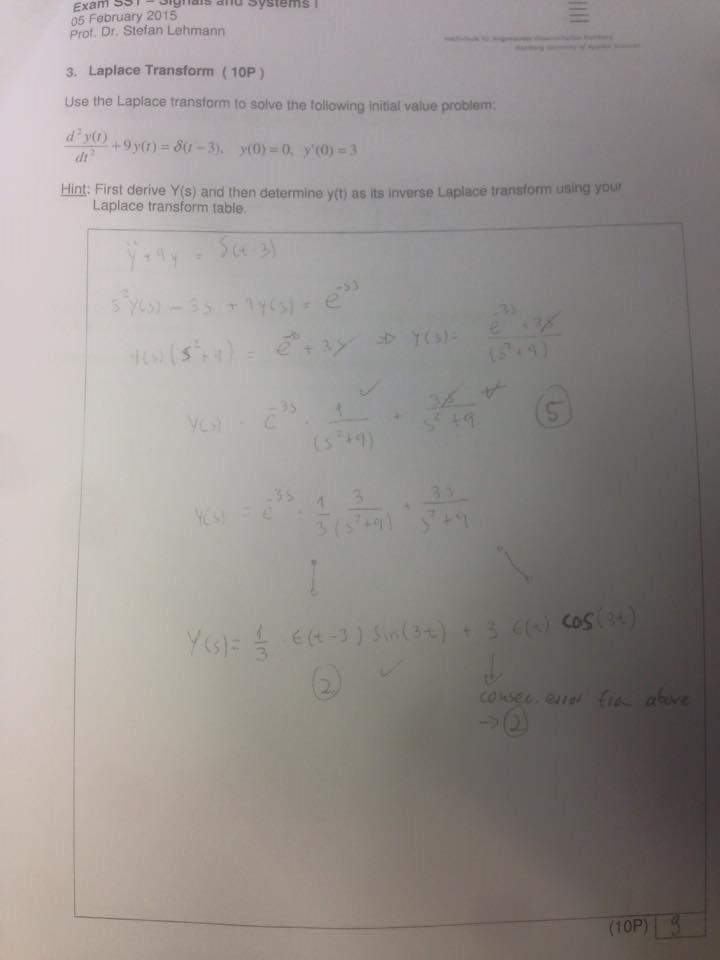 Exam SS1 – Signals and Systems I
05 February 2015
Prof. Dr. Stefan Lehmann
3. Laplace Transform ( 10P )
Use the Laplace transform to solve the following initial value problem:
d²y(t)/dt² + 9y(t) = δ(t − 3), y(0) = 0, y'(0) = 3
Hint: First derive Y(s) and then determine y(t) as its inverse Laplace transform using your
Laplace transform table.
ÿ + 9y = δ(t-3)
s²Y(s) − 3s + 9Y(s) = e^-3s
Y(s)(s²+9) = e^-3s + 3s ⇒ Y(s) = (e^-3s + 3s)/(s²+9)
Y(s) = e^-3s · 1/(s²+9) + 3s/(s²+9) ⑤
Y(s) = e^-3s · 1/3 · 3/(s²+9) + 3s/(s²+9)
Y(s) = 1/3 · ε(t-3) sin(3t) + 3 ε(t) cos(3t)
② ✓
consec. error from above
→ ②
(10P) 9